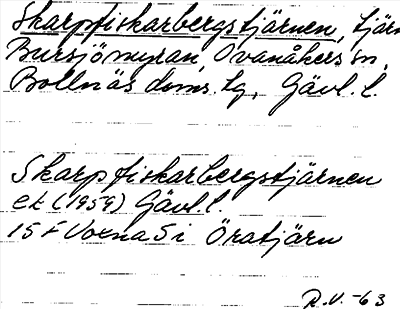 Skarpfiskarbergstjärnen, tjärn
Bursjömyran, Ovanåkers sn,
Bollnäs doms. tg, Gävl. l.
Skarpfiskarbergstjärnen
ek (1959) Gävl. l.
15 F Voxna 5 i Öratjärn
R.V. -63